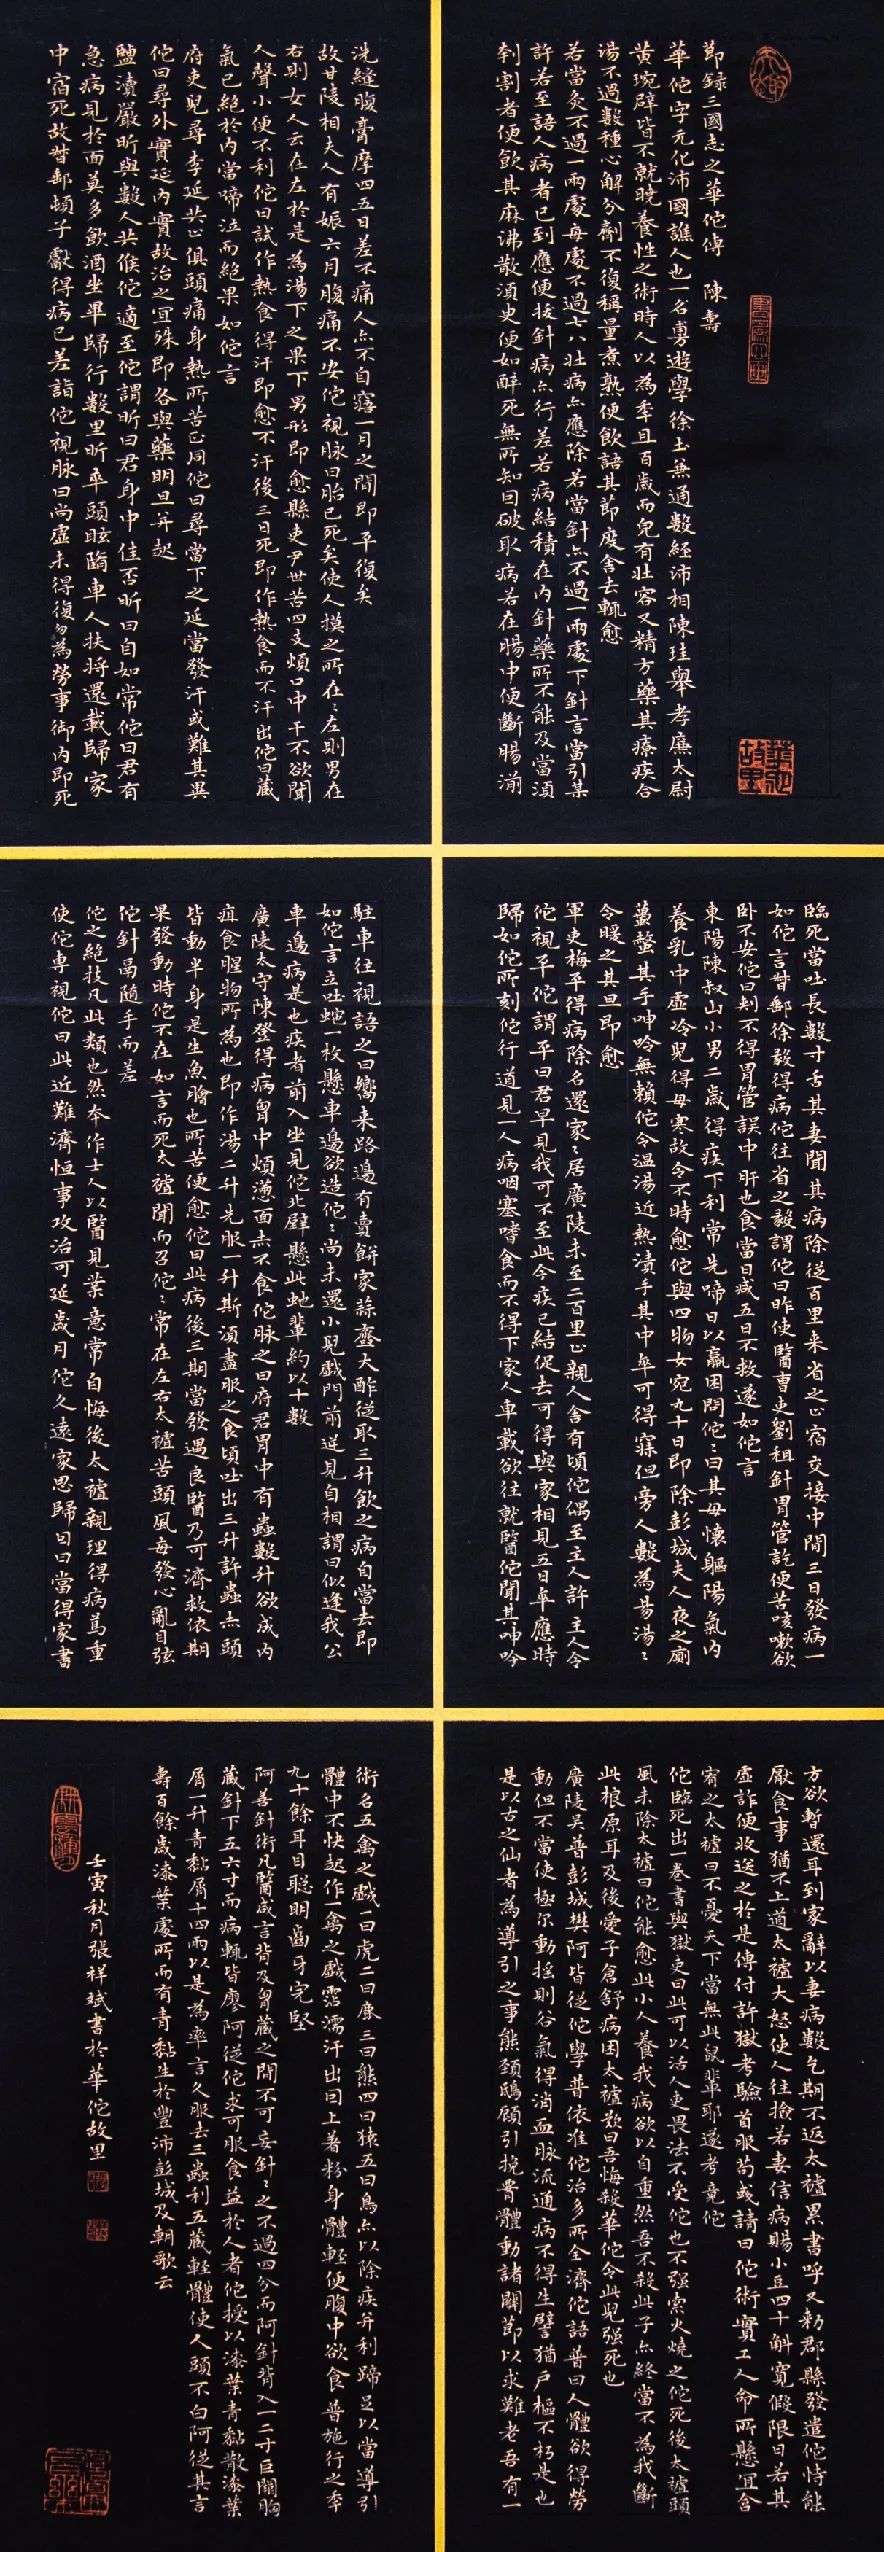 節錄三國志之華佗傳 陳壽
華佗字元化沛國譙人也一名旉遊學徐土兼通數經沛相陳珪舉孝廉太尉
黃琬辟皆不就曉養性之術時人以為年且百歲而皃有壯容又精方藥其療疾合
湯不過數種心解分劑不復稱量煮熟便飲語其節度舍去輒愈
若當灸不過一兩處每處不過七八壯病亦應除若當針亦不過一兩處下針言當引某
許若至語人病者已到應便拔針病亦行差若病結積在內針藥所不能及當須
刳割者便飲其麻沸散須臾便如醉死無所知因破取病若在腸中便斷腸湔
洗縫腹膏摩四五日差不痛人亦不自寤一月之間即平復矣
故甘陵相夫人有娠六月腹痛不安佗視脉曰胎已死矣使人摸之所在〻左則男在
右則女人云在左於是為湯下之果下男形即愈縣吏尹世苦四支煩口中干不欲聞
人聲小便不利佗曰試作熱食得汗即愈不汗後三日死即作熱食而不汗出佗曰藏
氣已絕於內當啼泣而絕果如佗言
府吏兒尋李延共止俱頭痛身熱所苦正同佗曰尋當下之延當發汗或難其異
佗曰尋外實延內實故治之宜殊即各與藥明旦并起
鹽瀆嚴昕與數人共候佗適至佗謂昕曰君身中佳否昕曰自如常佗曰君有
急病見於面莫多飲酒坐畢歸行數里昕卒頭眩墮車人扶將還載歸家
中宿死故督郵頓子獻得病已差詣佗視脉曰尚虛未得復勿為勞事御內即死
臨死當吐長數寸舌其妻聞其病除從百里來省之止宿交接中間三日發病一
如佗言督郵徐毅得病佗往省之毅謂佗曰昨使醫曹吏劉租針胃管訖便苦咳嗽欲
臥不安佗曰刺不得胃管誤中肝也食當日減五日不救遂如佗言
東陽陳叔山小男二歲得疾下利常先啼日以羸困問佗〻曰其母懷軀陽氣內
養乳中虛冷兒得母寒故令不時愈佗與四物女宛丸十日即除彭城夫人夜之廁
蠆螫其手呻吟無賴佗令溫湯近熱漬手其中卒可得寐但旁人數為易湯〻
令暖之其旦即愈
軍吏梅平得病除名還家〻居廣陵未至二百里止親人舍有頃佗偶至主人許主人令
佗視平佗謂平曰君早見我可不至此今疾已結促去可得與家相見五日卒應時
歸如佗所刻佗行道見一人病咽塞嗜食而不得下家人車載欲往就醫佗聞其呻吟
駐車往視語之曰嚮來路邊有賣餅家蒜虀大酢從取三升飲之病自當去即
如佗言立吐蛇一枚懸車邊欲造佗〻尚未還小兒戲門前逆見自相謂曰似逢我公
車邊病是也疾者前入坐見佗北壁懸此蛇輩約以十數
廣陵太守陳登得病胷中煩懣面赤不食佗脉之曰府君胃中有蟲數升欲成內
疽食腥物所為也即作湯二升先服一升斯須盡服之食頃吐出三升許蟲赤頭
皆動半身是生魚膾也所苦便愈佗曰此病後三期當發遇良醫乃可濟救依期
果發動時佗不在如言而死太祖聞而召佗〻常在左右太祖苦頭風每發心亂目眩
佗針鬲隨手而差
佗之絕技凡此類也然本作士人以醫見業意常自悔後太祖親理得病篤重
使佗專視佗曰此近難濟恒事攻治可延歲月佗久遠家思歸因曰當得家書
方欲暫還耳到家辭以妻病數乞期不返太祖累書呼又勅郡縣發遣佗恃能
厭食事猶不上道太祖大怒使人往撿若妻信病賜小豆四十斛寬假限日若其
虛詐便收送之於是傳付許獄考驗首服荀彧請曰佗術實工人命所懸宜含
宥之太祖曰不憂天下當無此鼠輩耶遂考竟佗
佗臨死出一卷書與獄吏曰此可以活人吏畏法不受佗也不强索火燒之佗死後太祖頭
風未除太祖曰佗能愈此小人養我病欲以自重然吾不殺此子亦終當不為我斷
此根原耳及後愛子倉舒病困太祖歎曰吾悔殺華佗令此兒强死也
廣陵吳普彭城樊阿皆從佗學普依准佗治多所全濟佗語普曰人體欲得勞
動但不當使極尔動搖則谷氣得消血脉流通病不得生譬猶戶樞不朽是也
是以古之仙者為導引之事熊頸鴟顧引挽體動諸關節以求難老吾有一
術名五禽之戲一曰虎二曰鹿三曰熊四曰猿五曰鳥亦以除疾并利蹄足以當導引
體中不快起作一禽之戲霑濡汗出因上著粉身體輕便腹中欲食普施行之年
九十餘耳目聰明齒牙完堅
阿善針術凡醫咸言背及胷藏之間不可妄針〻之不過四分而阿針背入一二寸巨闕胸
藏針下五六寸而病輒皆廖阿從佗求可服食益於人者佗授以漆葉青黏散漆葉
屑一升青黏屑十四兩以是為率言久服去三蟲利五藏輕體使人頭不白阿從其言
壽百餘歲漆葉處所而有青黏生於豐沛彭城及朝歌云
壬寅秋月張祥斌書於華佗故里
華佗故里